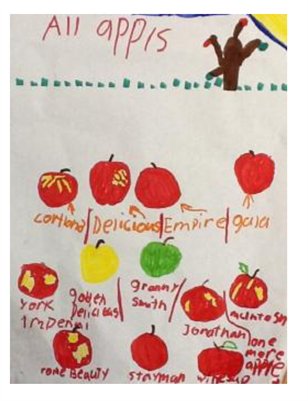 All appls
cortland/Delicious/Empire/gala
York
golden
Delicious/
granny
Smith/
Jonathan
McIntosh
Rome Beauty
Stayman
winesap
one
more
apple